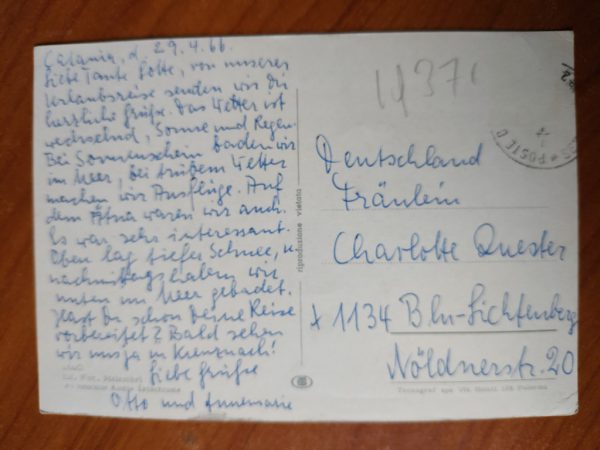 Catania, d. 29.4.66.
Liebe Tante Lotte, von unserer
Urlaubsreise senden wir Dir
herzliche Grüße. Das Wetter ist
wechselnd, Sonne und Regen.
Bei Sonnenschein baden wir
im Meer, bei trübem Wetter
machen wir Ausflüge. Auf
dem Ätna waren wir auch.
Es war sehr interessant.
Oben lag tiefer Schnee, u.
nachmittags haben wir
unten im Meer gebadet.
Hast Du schon Deine Reise
vorbereitet? Bald sehen
wir uns ja in Kreuznach!
Liebe Grüße
Otto und Annemarie
riproduzione vietata
POSTE
Deutschland
Fräulein
Charlotte Quester
x 1134 Bln-Lichtenberg
Nöldnerstr. 20